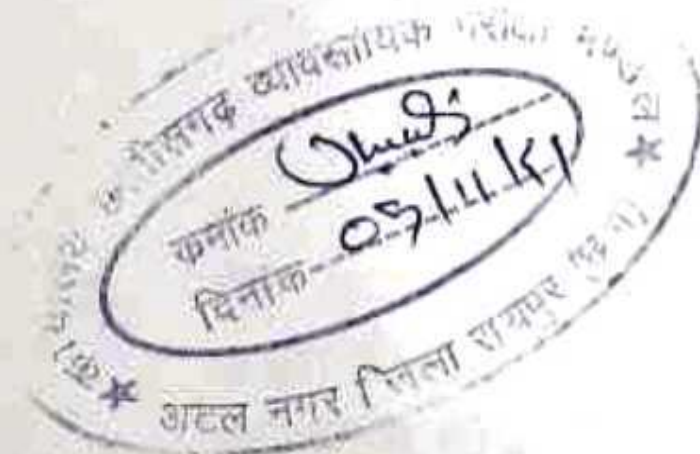 कार्यालय छत्तीसगढ़ व्यावसायिक परीक्षा मण्डल
क्रमांक
दिनांक 05/11/21
अटल नगर जिला रायपुर